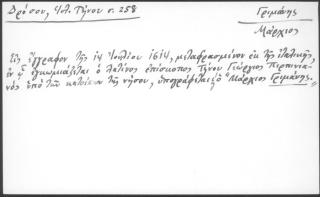 Δρόσου, Ἱστ. Τήνου σ. 258
Γριμάνης
Μάρκιος
εἰς ἔγγραφον τῆς 14 Ἰουλίου 1614, μεταφρασμένον ἐκ τῆς ἰταλικῆς,
ἐν ᾧ ἐγκωμιάζεται ὁ Λατῖνος ἐπίσκοπος Τήνου Γεώργιος Περπινια-
νός ὑπό τῶν κατοίκων τῆς νήσου, ὑπογράφεται ὁ "Μάρκιος Γριμάνης."